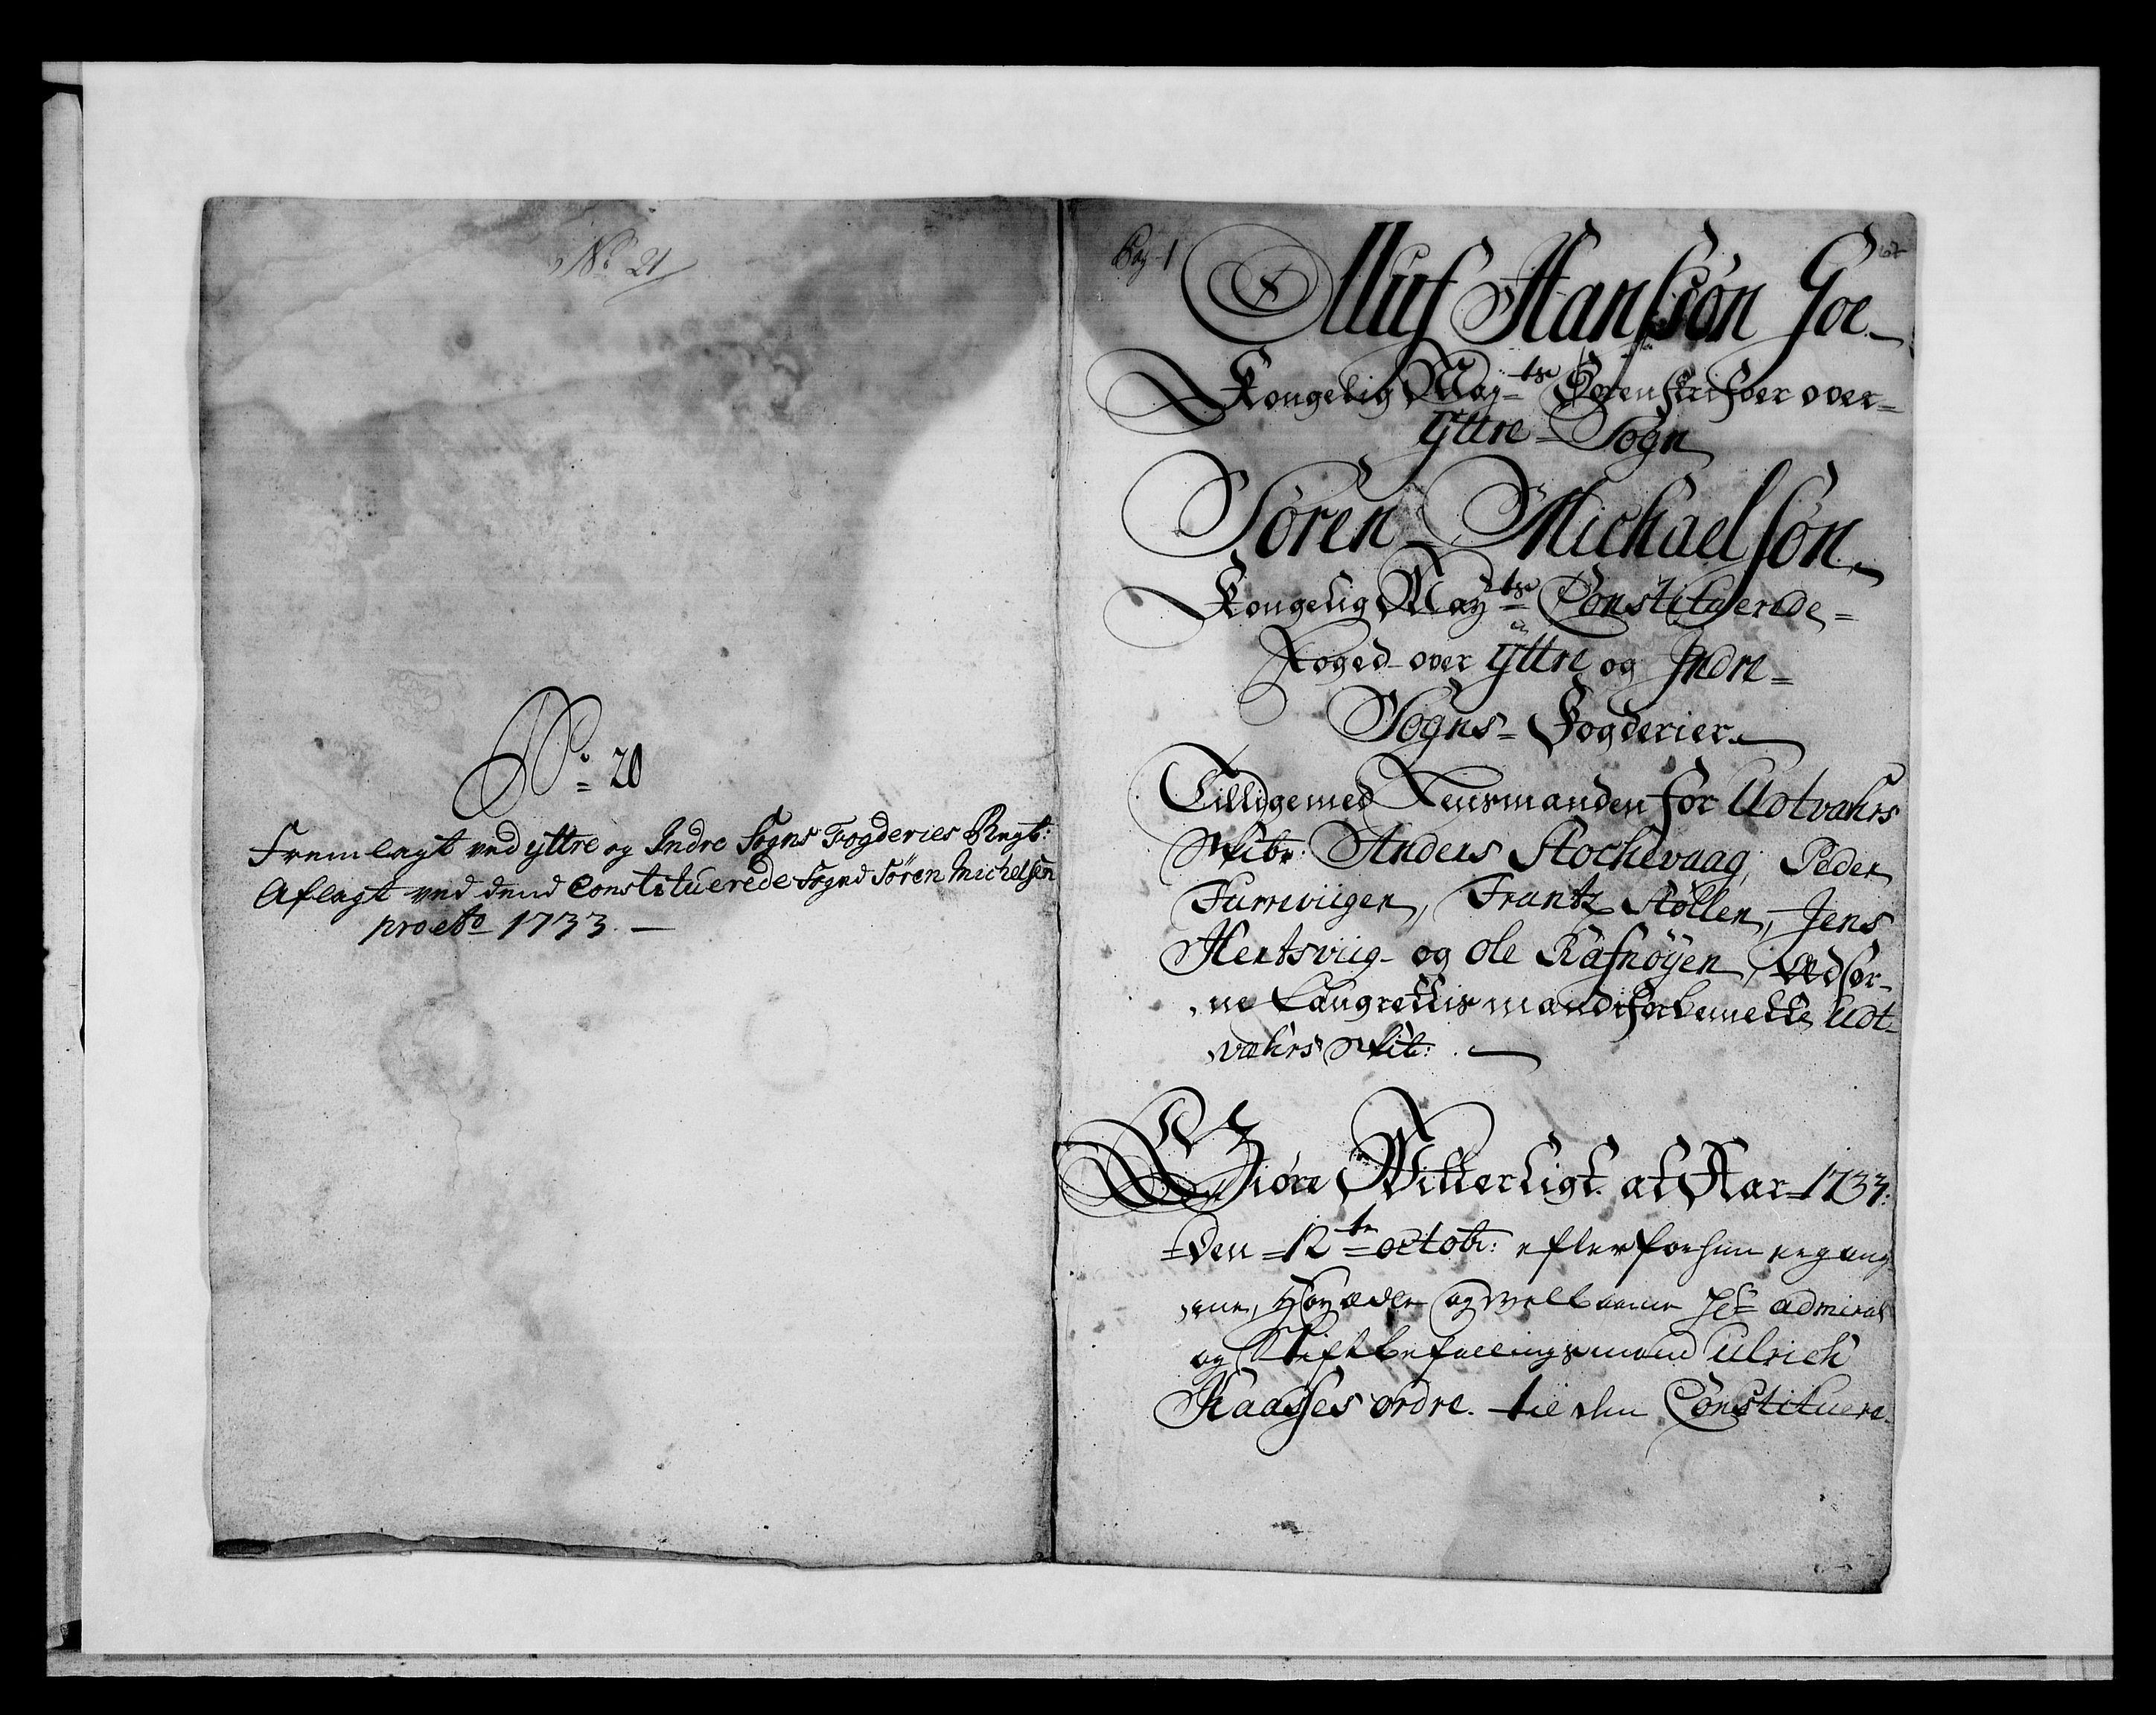 No: 21
No: 20
Fremlagt ved yttre og Indre Sogns Fogderies Regb:
Aflagt ved dend Constituerede Fogd Sören Michelsen
pro Ao 1733. —
Pag 1
Olluf Hanssön Goe-
Kongelig May=ts Sorenskrifver over=
Yttre = Sogn
Sören Michaelsön
Kongelig May=ts Constituerede=
Foged over Yttre og Indre=
Sogns = Fogderier.
Tilligemed Lensmanden for Udtvahrs
Skibr: Anders Stochevaag, Peder
Furreviigen, Frantz Höllen, Jens
Hertsviig og Ole Rafnöyen, Ædsor-
ne Laugrettismænd forbemelte Udt-
væhrs Skib:
Giöre Witterligt at Aar 1733:
Den 12te Octobr: efter forhen ergang
ne, Høyædle og Welbaarne Hr admiral
og Stiftbefallingsmand Ulrich
Kaasses ordre til den Constituere